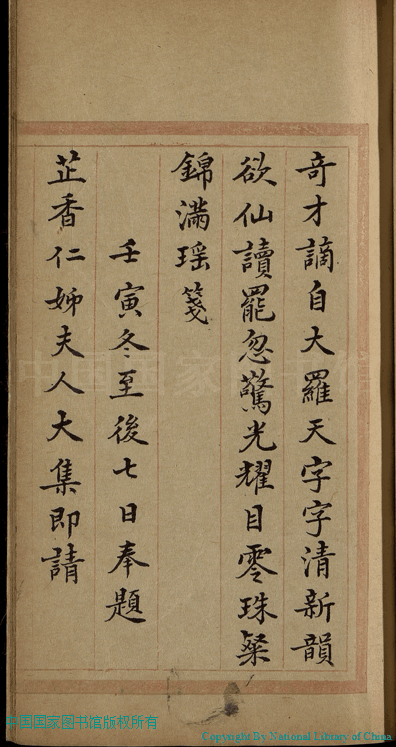 奇才謫自大羅天字字清新韻
欲仙讀罷忽驚光耀目零珠粲
錦滿瑶箋
壬寅冬至後七日奉題
芷香仁姊夫人大集即請
中国国家图书馆
中国国家图书馆版权所有
Copyright By National Library of China